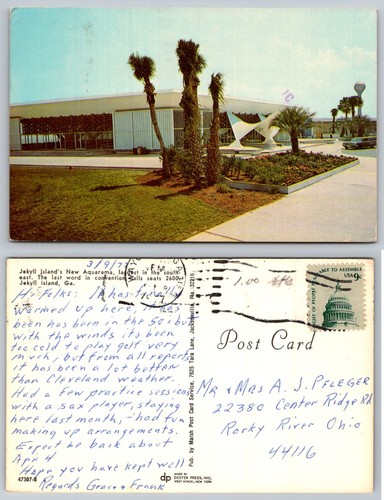 Jekyll Island's New Aquarama, largest in the south-
east. The last word in convention halls seats 2600.
Jekyll Island, Ga.
3/9/77
Hi Folks: It has finally
warmed up here, it has
been in the 50's but
with the winds, its been
too cold to play golf very
much, but from all reports
it has been a lot better
than Cleveland weather.
Had a few practice sessions
with a sax player, staying
here last month, - had fun
making up arrangements.
Expect be back about
Apr 4
Hope you have kept well
Regards Grace & Frank
47307-B
Pub. by Marsh Post Card Service, 7625 Tara Lane, Jacksonville, Fla. 32216
dp
MADE BY
DEXTER PRESS, INC.
WEST NYACK, NEW YORK
PM
1.00
TO ASSEMBLE
USA 9c
RIGHT OF PEOPLE
Post Card
Mr & Mrs A. J. Pfleger
22380 Center Ridge Rd
Rocky River Ohio
44116